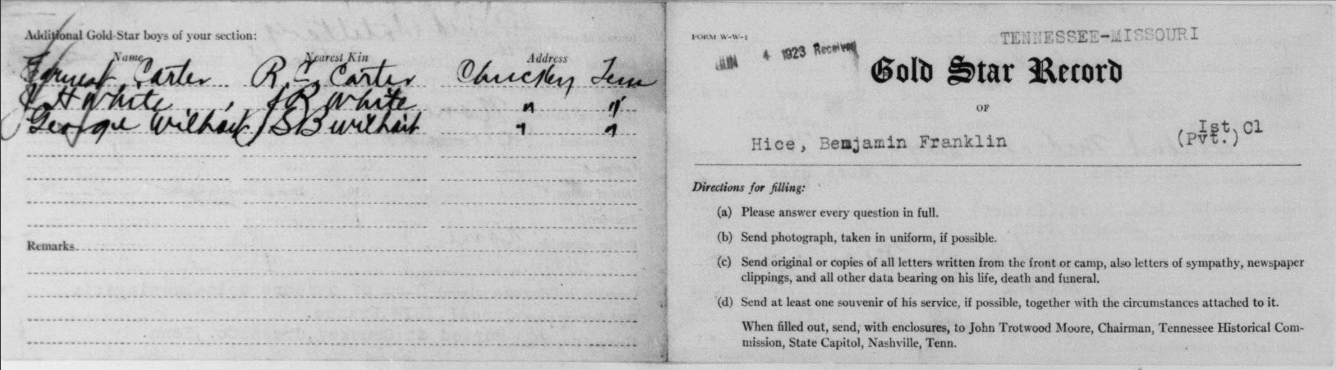 Additional Gold-Star boys of your section:
Name Nearest Kin Address
Forrest Carter R C Carter Chuckey Tenn
J H White J R White " "
Georgie Wilhait S B Wilhait " "
Remarks
FORM W-W-1
TENNESSEE-MISSOURI
JUN 4 1923 Received
Gold Star Record
OF
Hice, Benjamin Franklin (Pvt.) Ist. Cl
Directions for filling:
(a) Please answer every question in full.
(b) Send photograph, taken in uniform, if possible.
(c) Send original or copies of all letters written from the front or camp, also letters of sympathy, newspaper
clippings, and all other data bearing on his life, death and funeral.
(d) Send at least one souvenir of his service, if possible, together with the circumstances attached to it.
When filled out, send, with enclosures, to John Trotwood Moore, Chairman, Tennessee Historical Com-
mission, State Capitol, Nashville, Tenn.